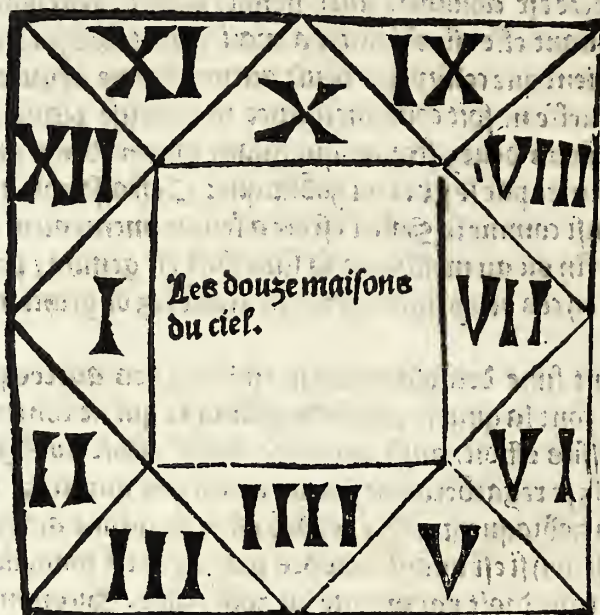 XI
IX
X
XII
VIII
Les douze maisons
du ciel.
I
VII
II
VI
IIII
III
V